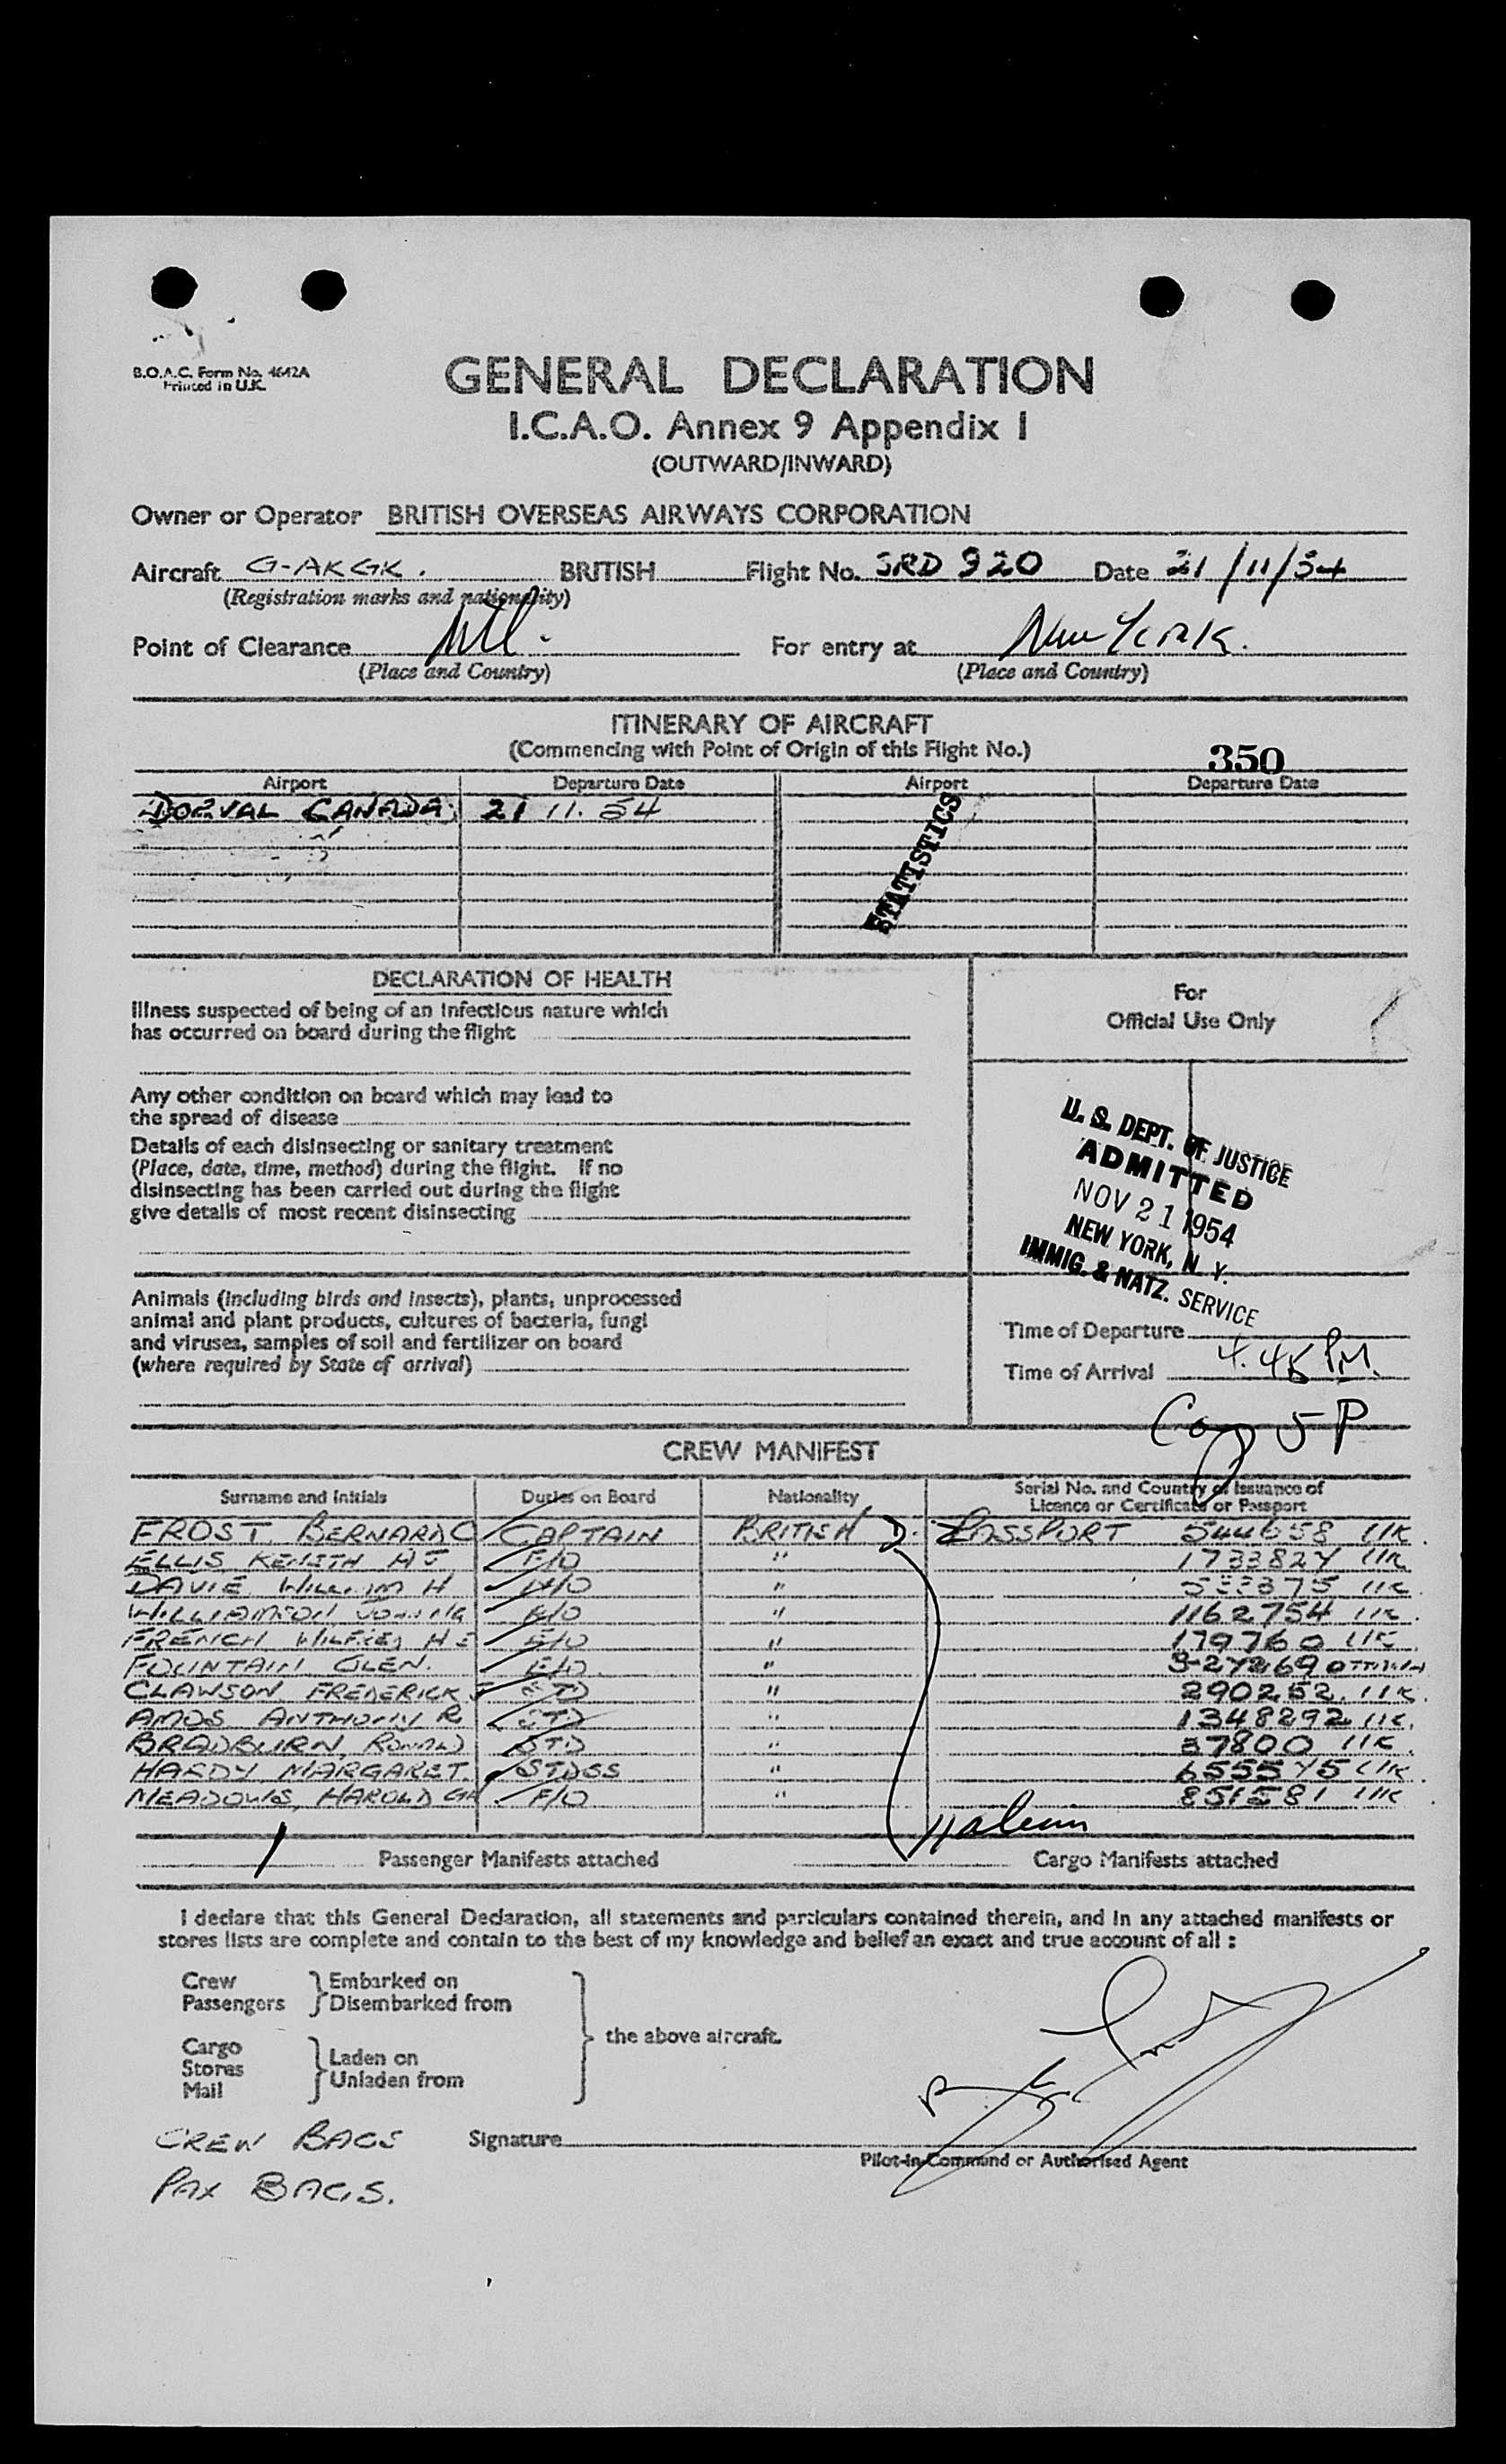 B.O.A.C. Form No. 4642A
Printed in U.K.
GENERAL DECLARATION
I.C.A.O. Annex 9 Appendix 1
(OUTWARD/INWARD)
Owner or Operator BRITISH OVERSEAS AIRWAYS CORPORATION
Aircraft G-AKGK. BRITISH Flight No. SRD 920 Date 21/11/54
(Registration marks and nationality)
Point of Clearance For entry at New York.
(Place and Country) (Place and Country)
ITINERARY OF AIRCRAFT
(Commencing with Point of Origin of this Flight No.)
350
Airport Departure Date Airport Departure Date
DORVAL CANADA 21 11. 54
STATISTICS
DECLARATION OF HEALTH
Illness suspected of being of an infectious nature which
has occurred on board during the flight
For
Official Use Only
Any other condition on board which may lead to
the spread of disease
Details of each disinsecting or sanitary treatment
(Place, date, time, method) during the flight. If no
disinsecting has been carried out during the flight
give details of most recent disinsecting
U. S. DEPT. OF JUSTICE
ADMITTED
NOV 21 1954
NEW YORK, N. Y.
IMMIG. & NATZ. SERVICE
Animals (including birds and insects), plants, unprocessed
animal and plant products, cultures of bacteria, fungi
and viruses, samples of soil and fertilizer on board
(where required by State of arrival)
Time of Departure
Time of Arrival 4.45 PM.
5 P
CREW MANIFEST
Surname and Initials Duties on Board Nationality Serial No. and Country of Issuance of
Licence or Certificate or Passport
FROST, BERNARD C CAPTAIN BRITISH D. PASSPORT 544658 UK
ELLIS KENITH A J F/O " 1733824 UK
DAVIE WILLIAM H " UK
WILLIAMSON " 1162754 UK
FRENCH WILFRED " 179760 UK
FOUNTAIN GLEN. " OTTAWA
CLAWSON FREDERICK STD " 290252 UK.
AMOS ANTHONY R STD " 1348292 UK.
BRADBURN, RONALD STD " 37800 UK.
HARDY MARGARET. STDSS " 6555 45 UK.
MEADOWS, HAROLD F/O " 851581 UK
1 Passenger Manifests attached Cargo Manifests attached
I declare that this General Declaration, all statements and particulars contained therein, and in any attached manifests or
stores lists are complete and contain to the best of my knowledge and belief an exact and true account of all :
Crew Embarked on
Passengers Disembarked from
the above aircraft.
Cargo
Stores Laden on
Mail Unladen from
CREW BAGS Signature
Pilot-in-Command or Authorised Agent
PAX BAGS.